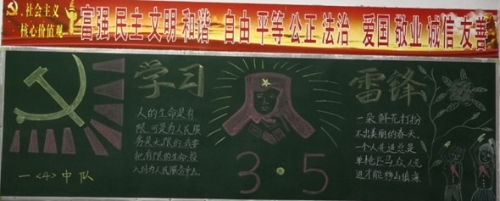 社会主义
核心价值观
富强 民主 文明 和谐 自由 平等 公正 法治 爱国 敬业 诚信 友善
学习
人的生命是有
限,可是为人民服
务是无限的,我要
把有限的生命,投
入到为人民服务中去
一〈4〉中队
3·5
雷锋
一朵鲜花打扮
不出美丽的春天,
一个人先进总是
单枪匹马,众人先
进才能移山填海